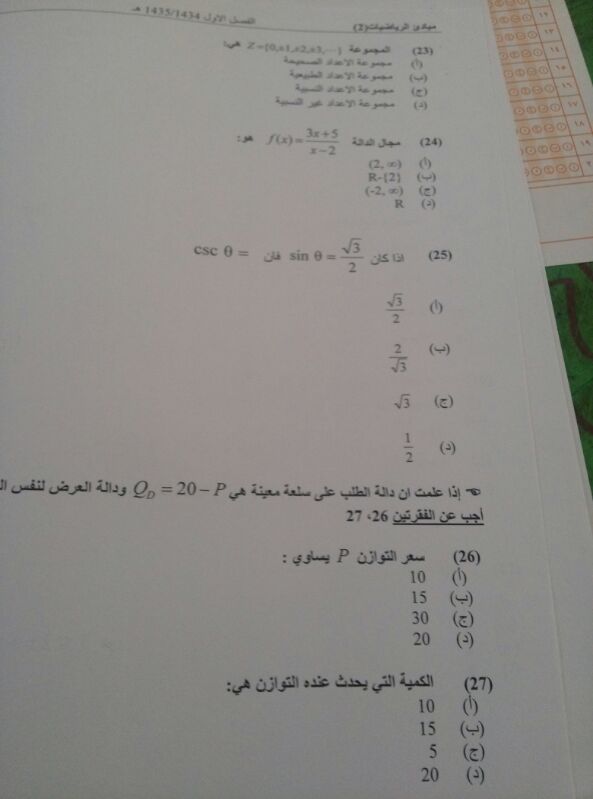 مبادئ الرياضيات(2) الفصل الأول 1435/1434 هـ
(23) المجموعة Z={0,±1,±2,±3,…} هي:
(أ) مجموعة الاعداد الصحيحة
(ب) مجموعة الاعداد الطبيعية
(ج) مجموعة الاعداد النسبية
(د) مجموعة الاعداد غير النسبية
(24) مجال الدالة f(x) = (3x+5)/(x−2) هو:
(أ) (2, ∞)
(ب) R-{2}
(ج) (-2, ∞)
(د) R
(25) اذا كان sin θ = √3/2 فان csc θ =
(أ) √3/2
(ب) 2/√3
(ج) √3
(د) 1/2
إذا علمت ان دالة الطلب على سلعة معينة هي Q_D = 20 − P ودالة العرض لنفس
أجب عن الفقرتين 26، 27
(26) سعر التوازن P يساوي :
(أ) 10
(ب) 15
(ج) 30
(د) 20
(27) الكمية التي يحدث عنده التوازن هي:
(أ) 10
(ب) 15
(ج) 5
(د) 20